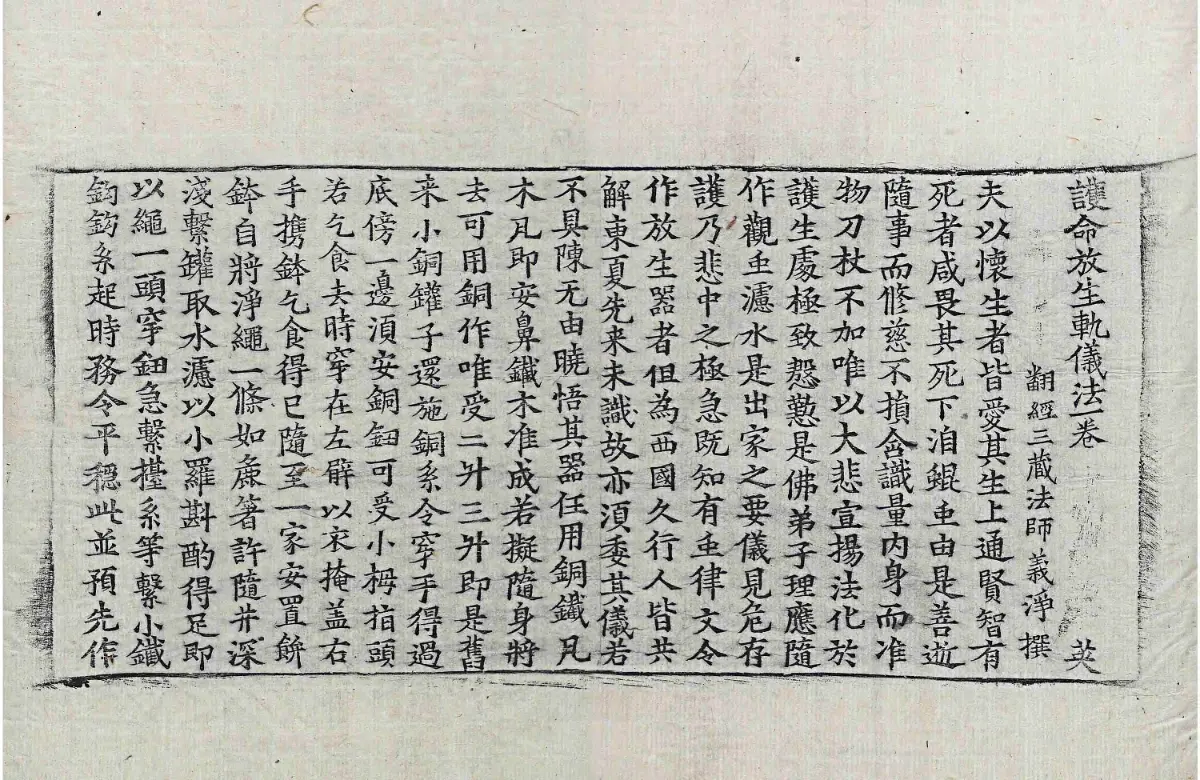 護命放生軌儀法一卷 英
翻經三藏法師義淨 撰
夫以懷生者皆愛其生上通賢智有
死者咸畏其死下洎鯤䖝由是善逝
隨事而修慈不損含識量內身而准
物刀杖不加唯以大悲宣揚法化於
護生處極致慇懃是佛弟子理應隨
作觀䖝濾水是出家之要儀見危存
護乃悲中之極急既知有䖝律文令
作放生器者但為西國久行人皆共
解東夏先来未識故亦湏委其儀若
不具陳无由曉悟其器任用銅鐵凡
木凡即安鼻鐵木准成若擬隨身將
去可用銅作唯受二升三升即是舊
来小銅鑵子還施銅系令穿手得過
底傍一邊湏安銅鈕可受小拇指頭
若乞食去時穿在左臂以衣掩盖右
手携鉢乞食得已隨至一家安置餅
鉢自將淨繩一條如麁箸許隨井深
淺繫鑵取水濾以小羅斟酌得足即
以繩一頭穿鈕急繫擡系等繫小鐵
鈎鈎系起時務令平穩此並預先作